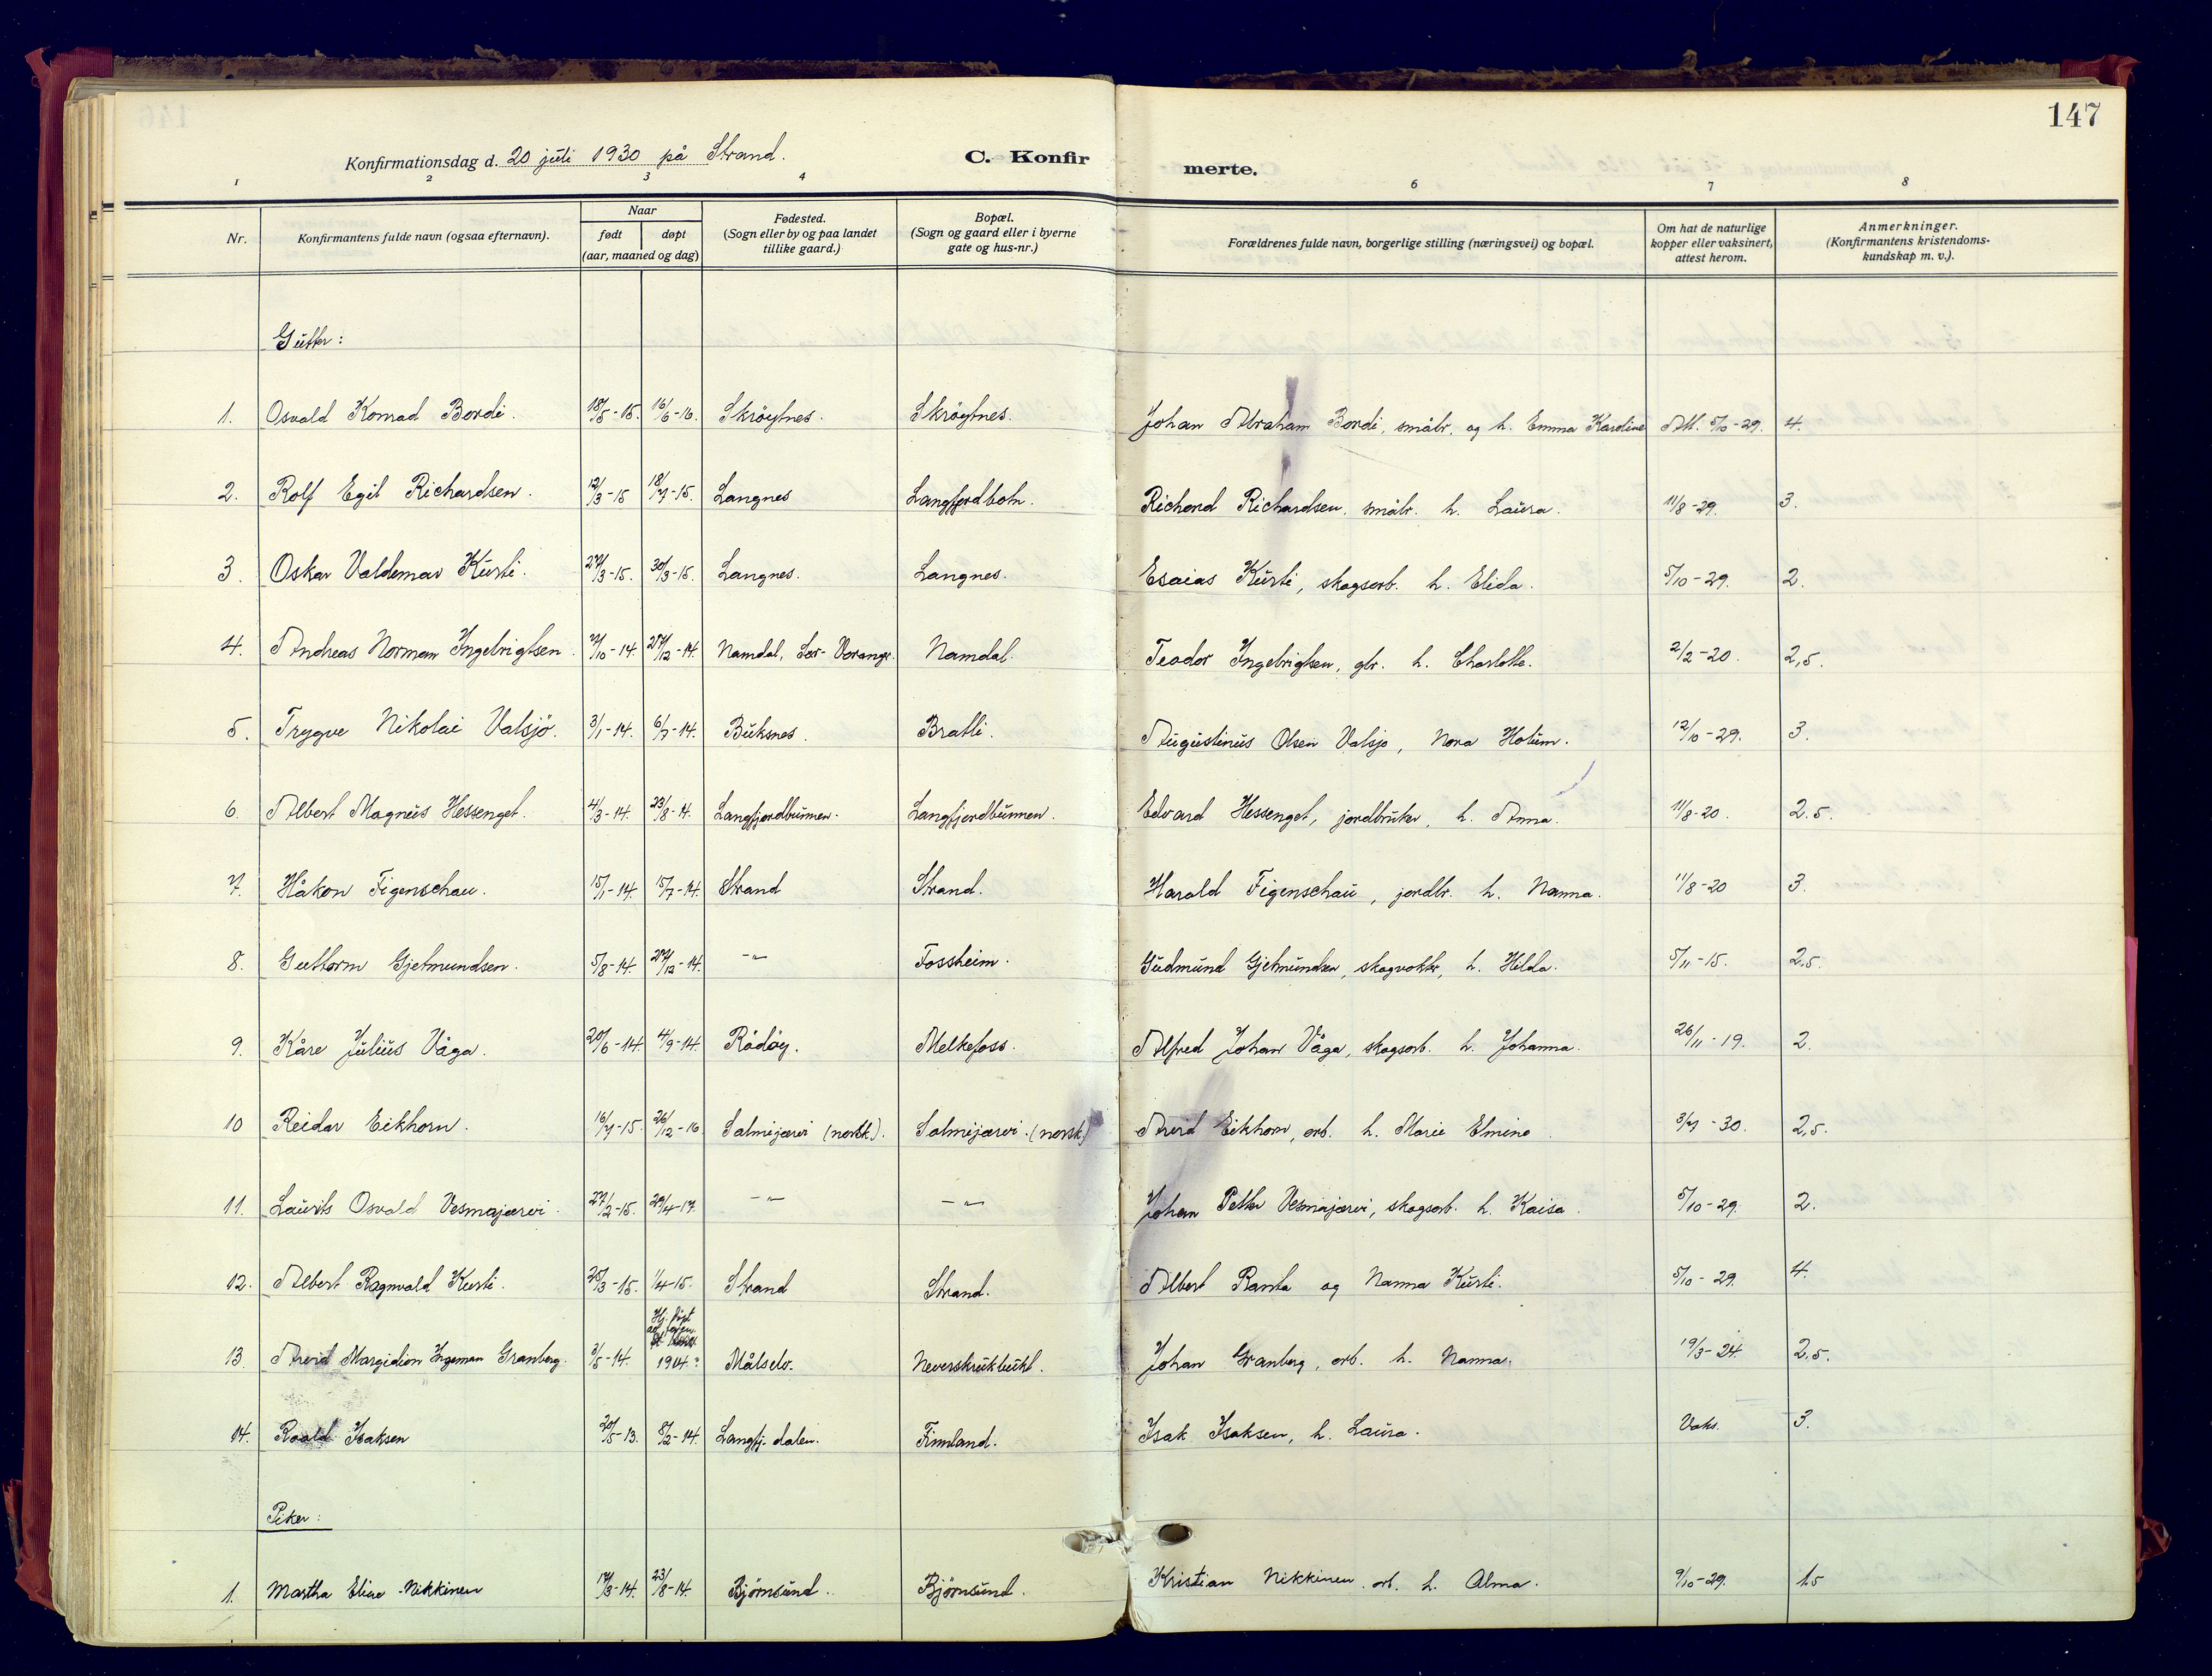 147
Konfirmationsdag d. 20 juli 1930 på Strand. C. Konfirmerte.
1 2 3 4 6 7 8
Nr. Konfirmantens fulde navn (ogsaa efternavn). Naar født døpt (aar, maaned og dag) Fødested. (Sogn eller by og paa landet tillike gaard.) Bopæl. (Sogn og gaard eller i byerne gate og hus-nr.) Forældrenes fulde navn, borgerlige stilling (næringsvei) og bopæl. Om hat de naturlige kopper eller vaksinert, attest herom. Anmerkninger. (Konfirmantens kristendoms-kundskap m. v.).
Gutter:
1. Osvald Konrad Bordi. 18/5-15. 16/6-16. Skrøytnes. Skrøytnes. Johan Abraham Bordi, småbr. og h. Emma Karoline Att. 5/10-29. 4.
2. Rolf Egil Richardsen. 12/3-15 18/7-15. Langnes Langfjordbotn. Richard Richardsen, småbr. h. Laura. 11/8-29. 3.
3. Oskar Valdemar Kurti. 27/3-15. 30/3-15. Langnes. Langnes. Esaias Kurti, skogsarb. h. Elida. 5/10-29. 2.
4. Andreas Norman Ingebrigtsen. 7/10-14. 27/12-14. Namdal, Sør-Varanger. Namdal. Teodor Ingebrigtsen, gbr. h. Charlotte. 2/2-20. 2,5.
5. Trygve Nikolai Valsjö. 3/1-14. 6/7-14. Buksnes. Bratli. Augustinus Olsen Valsjo, Nora Hotum. 12/10-29. 3.
6. Albert Magnus Hessenget. 4/3-14. 23/8-14. Langfjordbunnen. Langfjordbunnen. Edvard Hessenget, jordbruker, h. Anna. 11/8-20. 2.5.
7. Håkon Figenschau. 15/1-14. 15/7-14. Strand Strand. Harald Figenschau, jordbr. h. Nanna. 11/8-20 3.
8. Guttorm Gjetmundsen. 5/8-14. 27/12-14. -"- Fossheim. Gudmund Gjetmundsen, skogvokter, h. Hilda. 5/11-15. 2.5.
9. Kåre Julius Våga. 20/6-14. 4/9-14. Rödöy. Melkefoss. Alfred Johan Våga, skogsarb. h. Johanna. 26/11-19. 2.
10 Reidar Eikhorn. 16/7-15. 26/12-16 Salmijærvi (norsk). Salmijærvi. (norsk) Arvid Eikhorn, arb. h. Marie Elmine 3/7-30. 2,5.
11. Laurits Osvald Vesmajærvi. 27/2-15. 29/4-17. -"- -"- Johan Petter Vesmajærvi, skogsarb. h. Kaisa. 5/10-29. 2.
12. Albert Ragnvald Kurti. 25/3-15. 1/4-15. Strand Strand. Albert Ranta og Nanna Kurti. 5/10-29. 4.
13. Arvid Margidion Ingeman Granberg. 3/5-14. Hj. døpt 1914. Målselv. Neverskrukbukt. Johan Granberg, arb. h. Nanna. 19/3-24. 2,5.
14. Roald Isaksen 20/5-13. 8/2-14. Langfj.dalen. Finnland. Isak Isaksen, h. Laura. Vaks. 3.
Piker:
1. Martha Elise Nikkinen 17/3-14. 23/8-14. Bjørnsund. Bjørnsund. Kristian Nikkinen, arb. h. Alma. 9/10-29. 1.5